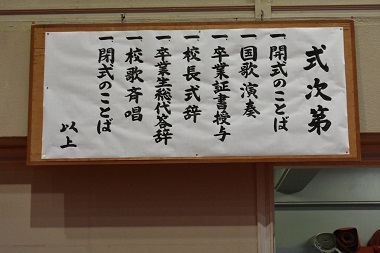 式次第
一開式のことば
一国歌演奏
一卒業証書授与
一校長式辞
一卒業生総代答辞
一校歌斉唱
一閉式のことば
以上